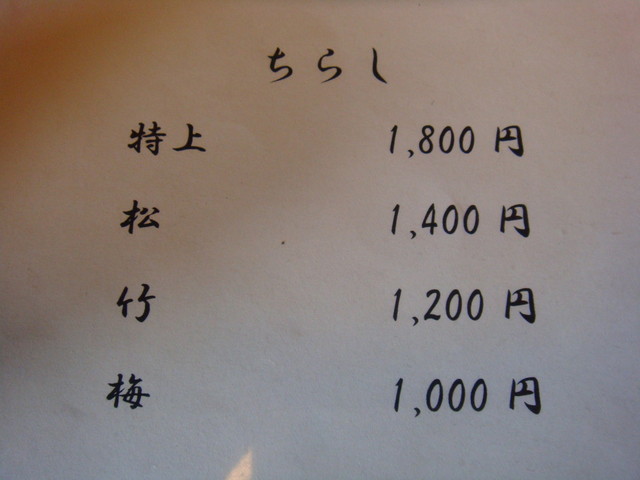 ちらし
特上 1,800 円
松 1,400 円
竹 1,200 円
梅 1,000 円